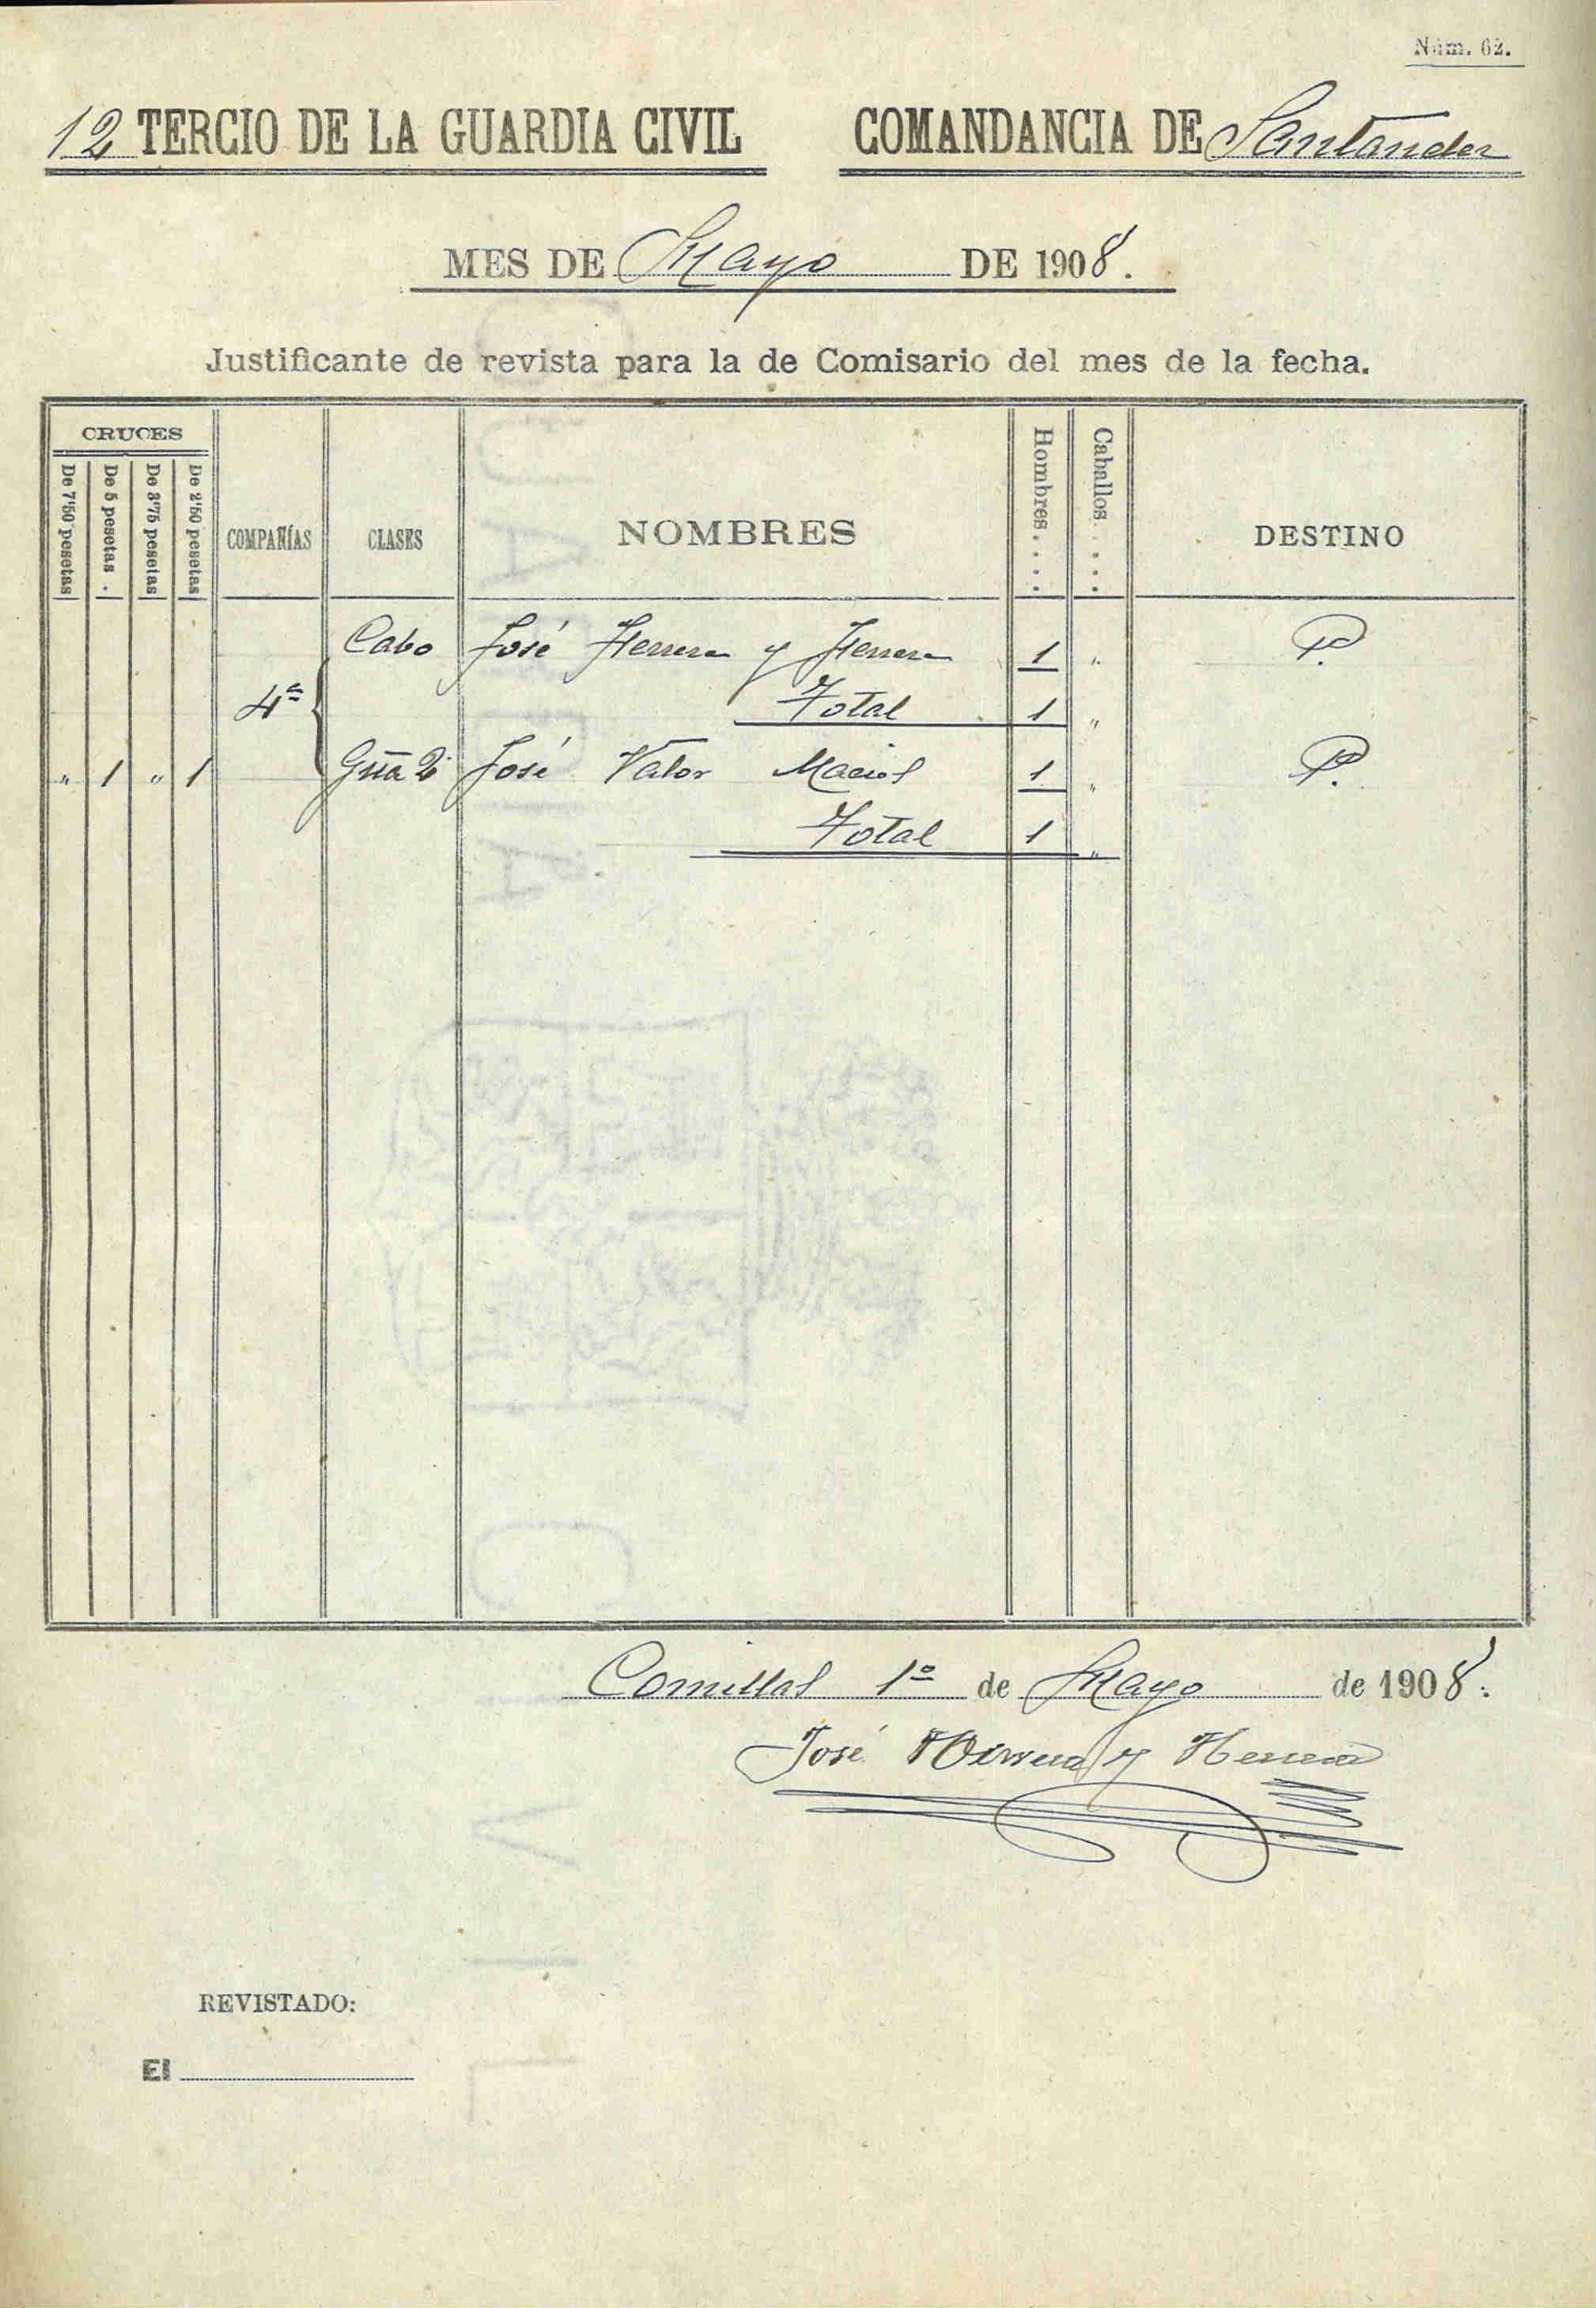 Núm. 62.
12 TERCIO DE LA GUARDIA CIVIL COMANDANCIA DE Santander
MES DE Mayo DE 1908.
Justificante de revista para la de Comisario del mes de la fecha.
CRUCES
De 7'50 pesetas De 5 pesetas . De 3'75 pesetas De 2'50 pesetas COMPAÑÍAS CLASES NOMBRES Hombres. . . . Caballos . . . . DESTINO
Cabo José Herrera y Herrera 1 " P.
4ª Total 1 "
" 1 " 1 Gua 2º José Valor Maciá 1 " P.
Total 1 "
Comillas 1º de Mayo de 1908.
José Herrera y Herrera
REVISTADO:
El
GUARDIA CIVIL